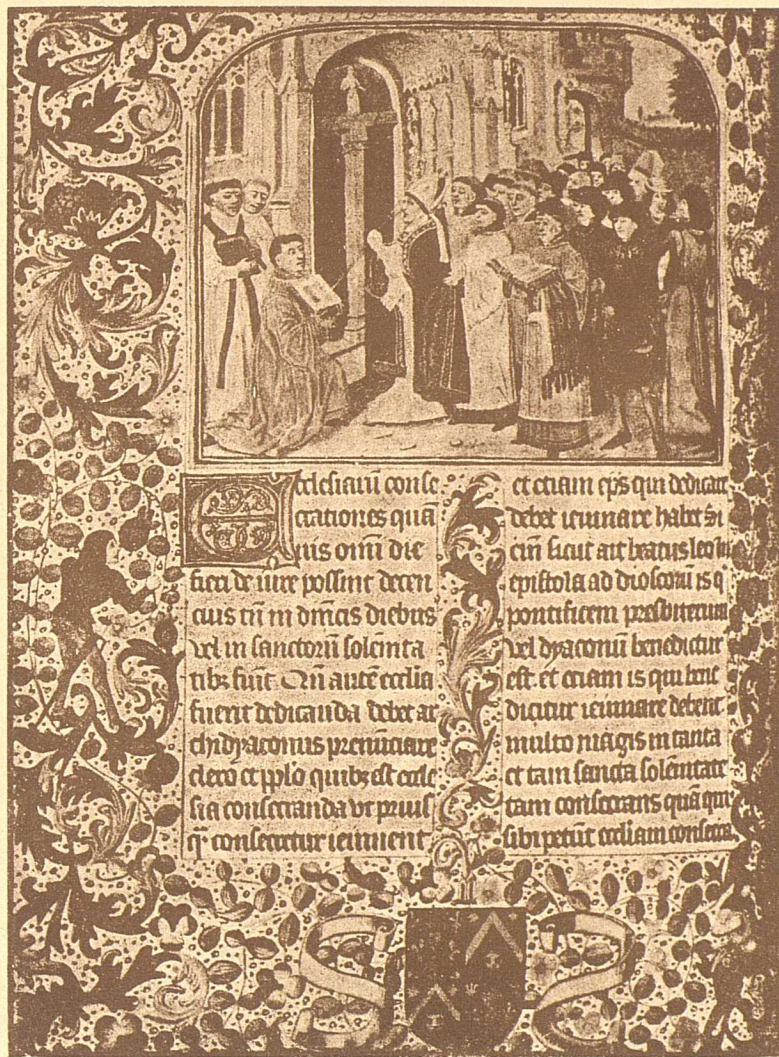 Ecclesiarū conse
crationes quā
uis omī die
fieri de iure possint decen
cius tn̄ in dn̄icis diebus
vel in sanctorū solēnita
tibȝ fiūt Qn̄ autē ecclīa
fuerit dedicanda debet ar
chidyaconus prenūciare
clero et pplō quibȝ est eccle
sia consecranda vt prius
qͣ consecretur ieiunent
et eciam ep̄s qui dedicare
debet ieiunare habet Si
cut ait beatus leo in
epistola ad dioscorū is q
pontificem presbiterum
vel dyaconū benedictur
est et eciam is qui bene
dicitur ieiunare debent
multo magis in tanta
et tam sancta solēnitate
tam consecrans quā qui
sibi petūt ecclīam consecra